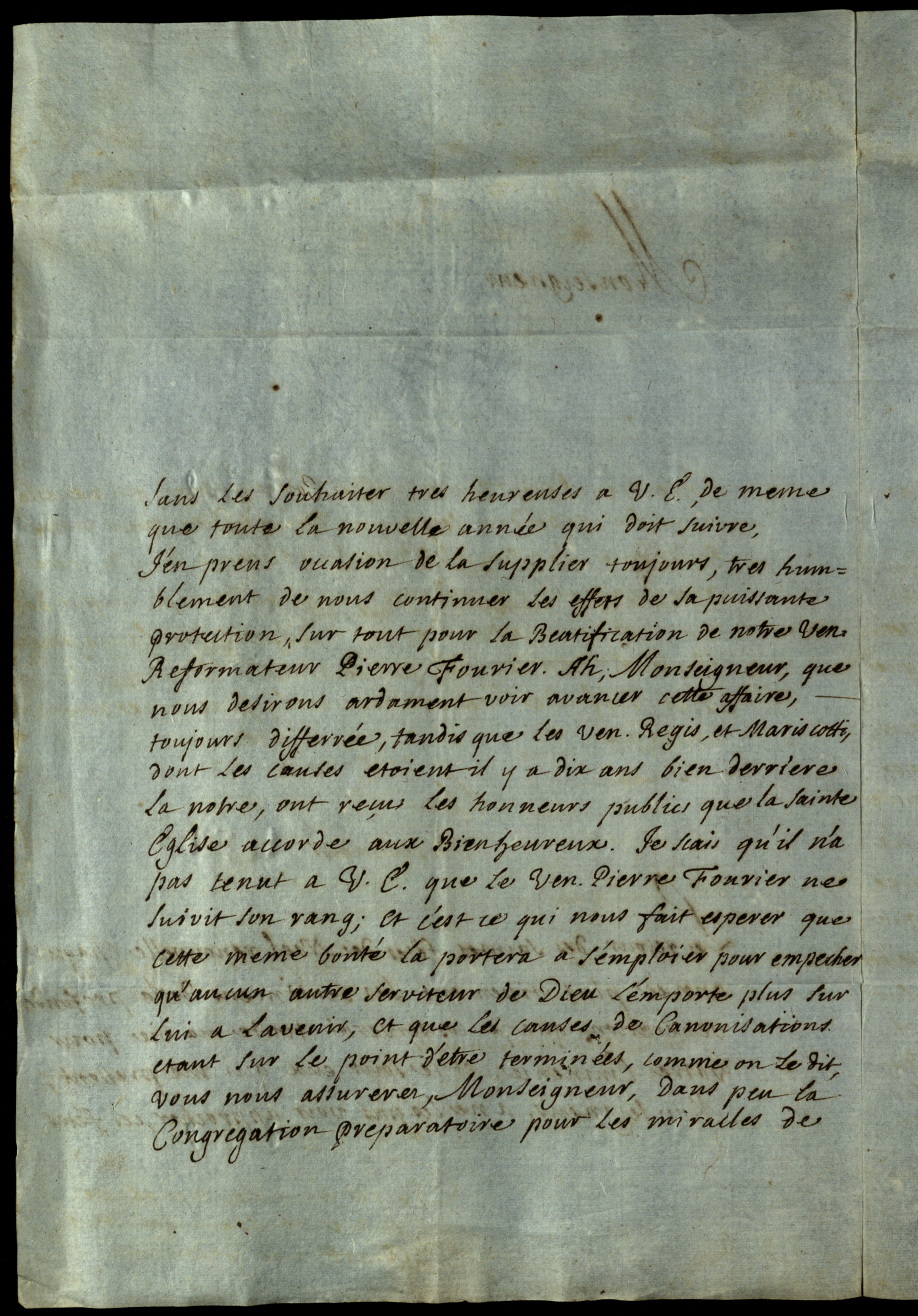 Monseigneur
sans les souhaiter tres heureuses a V. E. de meme
que toute la nouvelle année qui doit suivre,
J'en prens occasion de la supplier toujours, tres hum=
blement de nous continuer les effets de sa puissante
protection, sur tout pour la Beatification de notre Ven.
Reformateur Pierre Fourier. Ah, Monseigneur, que
nous desirons ardament voir avancer cette affaire, —
toujours differrée, tandis que les Ven. Regis, et Mariscotti,
dont les causes etoient il y a dix ans bien derriere
la notre, ont reçu les honneurs publics que la sainte
Eglise accorde aux Bienheureux. Je scais qu'il n'a
pas tenut a V. E. que le Ven. Pierre Fourier ne
suivit son rang; et c'est ce qui nous fait esperer que
cette meme bonté la portera a s'emploier pour empecher
qu'aucun autre serviteur de Dieu l'emporte plus sur
lui a l'avenir, et que les causes de Canonisations
etant sur le point d'etre terminées, comme on le dit,
vous nous assurerez, Monseigneur, dans peu la
Congregation preparatoire pour les miracles de